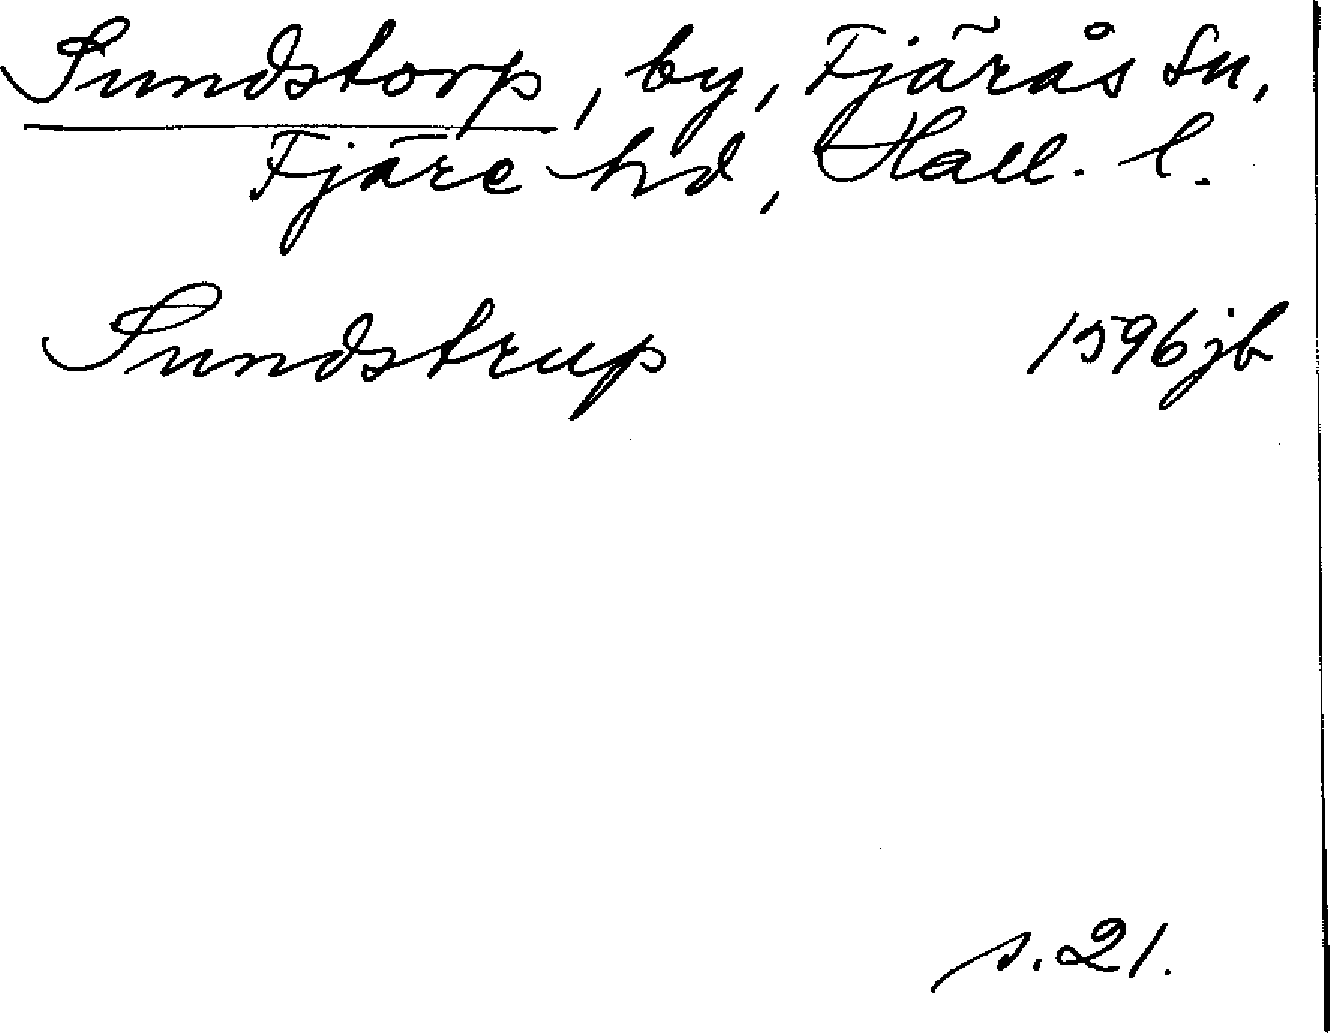 Sundstorp, by, Fjärås sn,
Fjäre hd, Hall. l.
Sundstrup 1596 jb
s. 21.